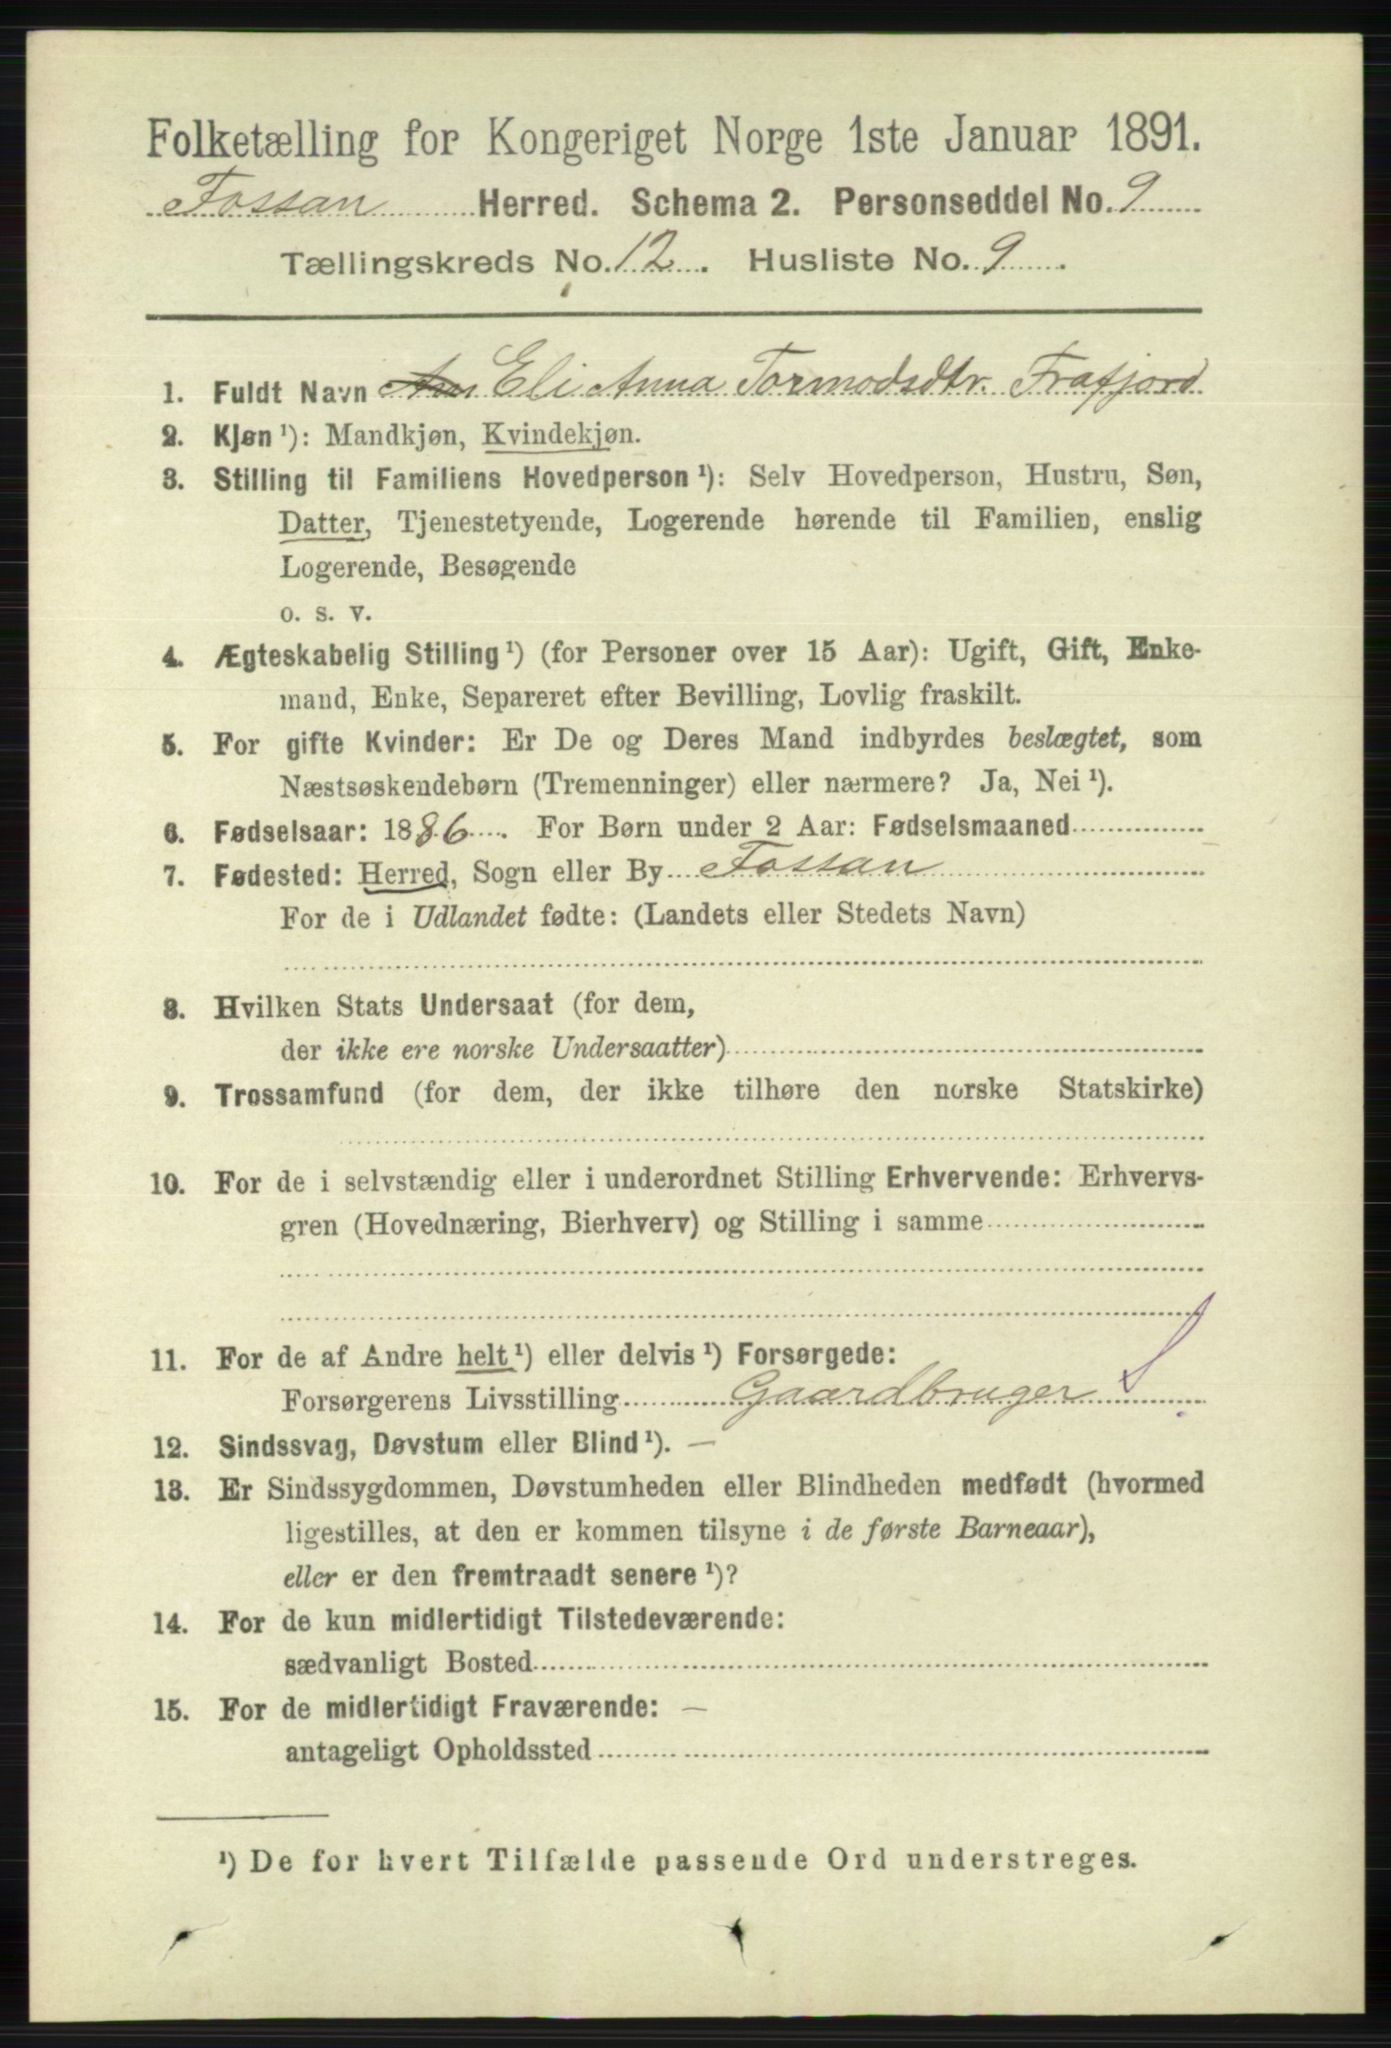 Folketælling for Kongeriget Norge 1ste Januar 1891.
Fossan Herred. Schema 2. Personseddel No. 9
Tællingskreds No. 12. Husliste No. 9.
1. Fuldt Navn Eli Anna Tormodsdtr. Frafjord
2. Kjøn ¹): Mandkjøn, Kvindekjøn.
3. Stilling til Familiens Hovedperson ¹): Selv Hovedperson, Hustru, Søn,
Datter, Tjenestetyende, Logerende hørende til Familien, enslig
Logerende, Besøgende
o. s. v.
4. Ægteskabelig Stilling ¹) (for Personer over 15 Aar): Ugift, Gift, Enke-
mand, Enke, Separeret efter Bevilling, Lovlig fraskilt.
5. For gifte Kvinder: Er De og Deres Mand indbyrdes beslægtet, som
Næstsøskendebørn (Tremenninger) eller nærmere? Ja, Nei ¹).
6. Fødselsaar: 1886. For Børn under 2 Aar: Fødselsmaaned
7. Fødested: Herred, Sogn eller By Fossan
For de i Udlandet fødte: (Landets eller Stedets Navn)
8. Hvilken Stats Undersaat (for dem,
der ikke ere norske Undersaatter)
9. Trossamfund (for dem, der ikke tilhøre den norske Statskirke)
10. For de i selvstændig eller i underordnet Stilling Erhvervende: Erhvervs-
gren (Hovednæring, Bierhverv) og Stilling i samme
11. For de af Andre helt ¹) eller delvis ¹) Forsørgede:
Forsørgerens Livsstilling Gaardbruger
12. Sindssvag, Døvstum eller Blind ¹). —
13. Er Sindssygdommen, Døvstumheden eller Blindheden medfødt (hvormed
ligestilles, at den er kommen tilsyne i de første Barneaar),
eller er den fremtraadt senere ¹)?
14. For de kun midlertidigt Tilstedeværende:
sædvanligt Bosted
15. For de midlertidigt Fraværende: —
antageligt Opholdssted
¹) De for hvert Tilfælde passende Ord understreges.